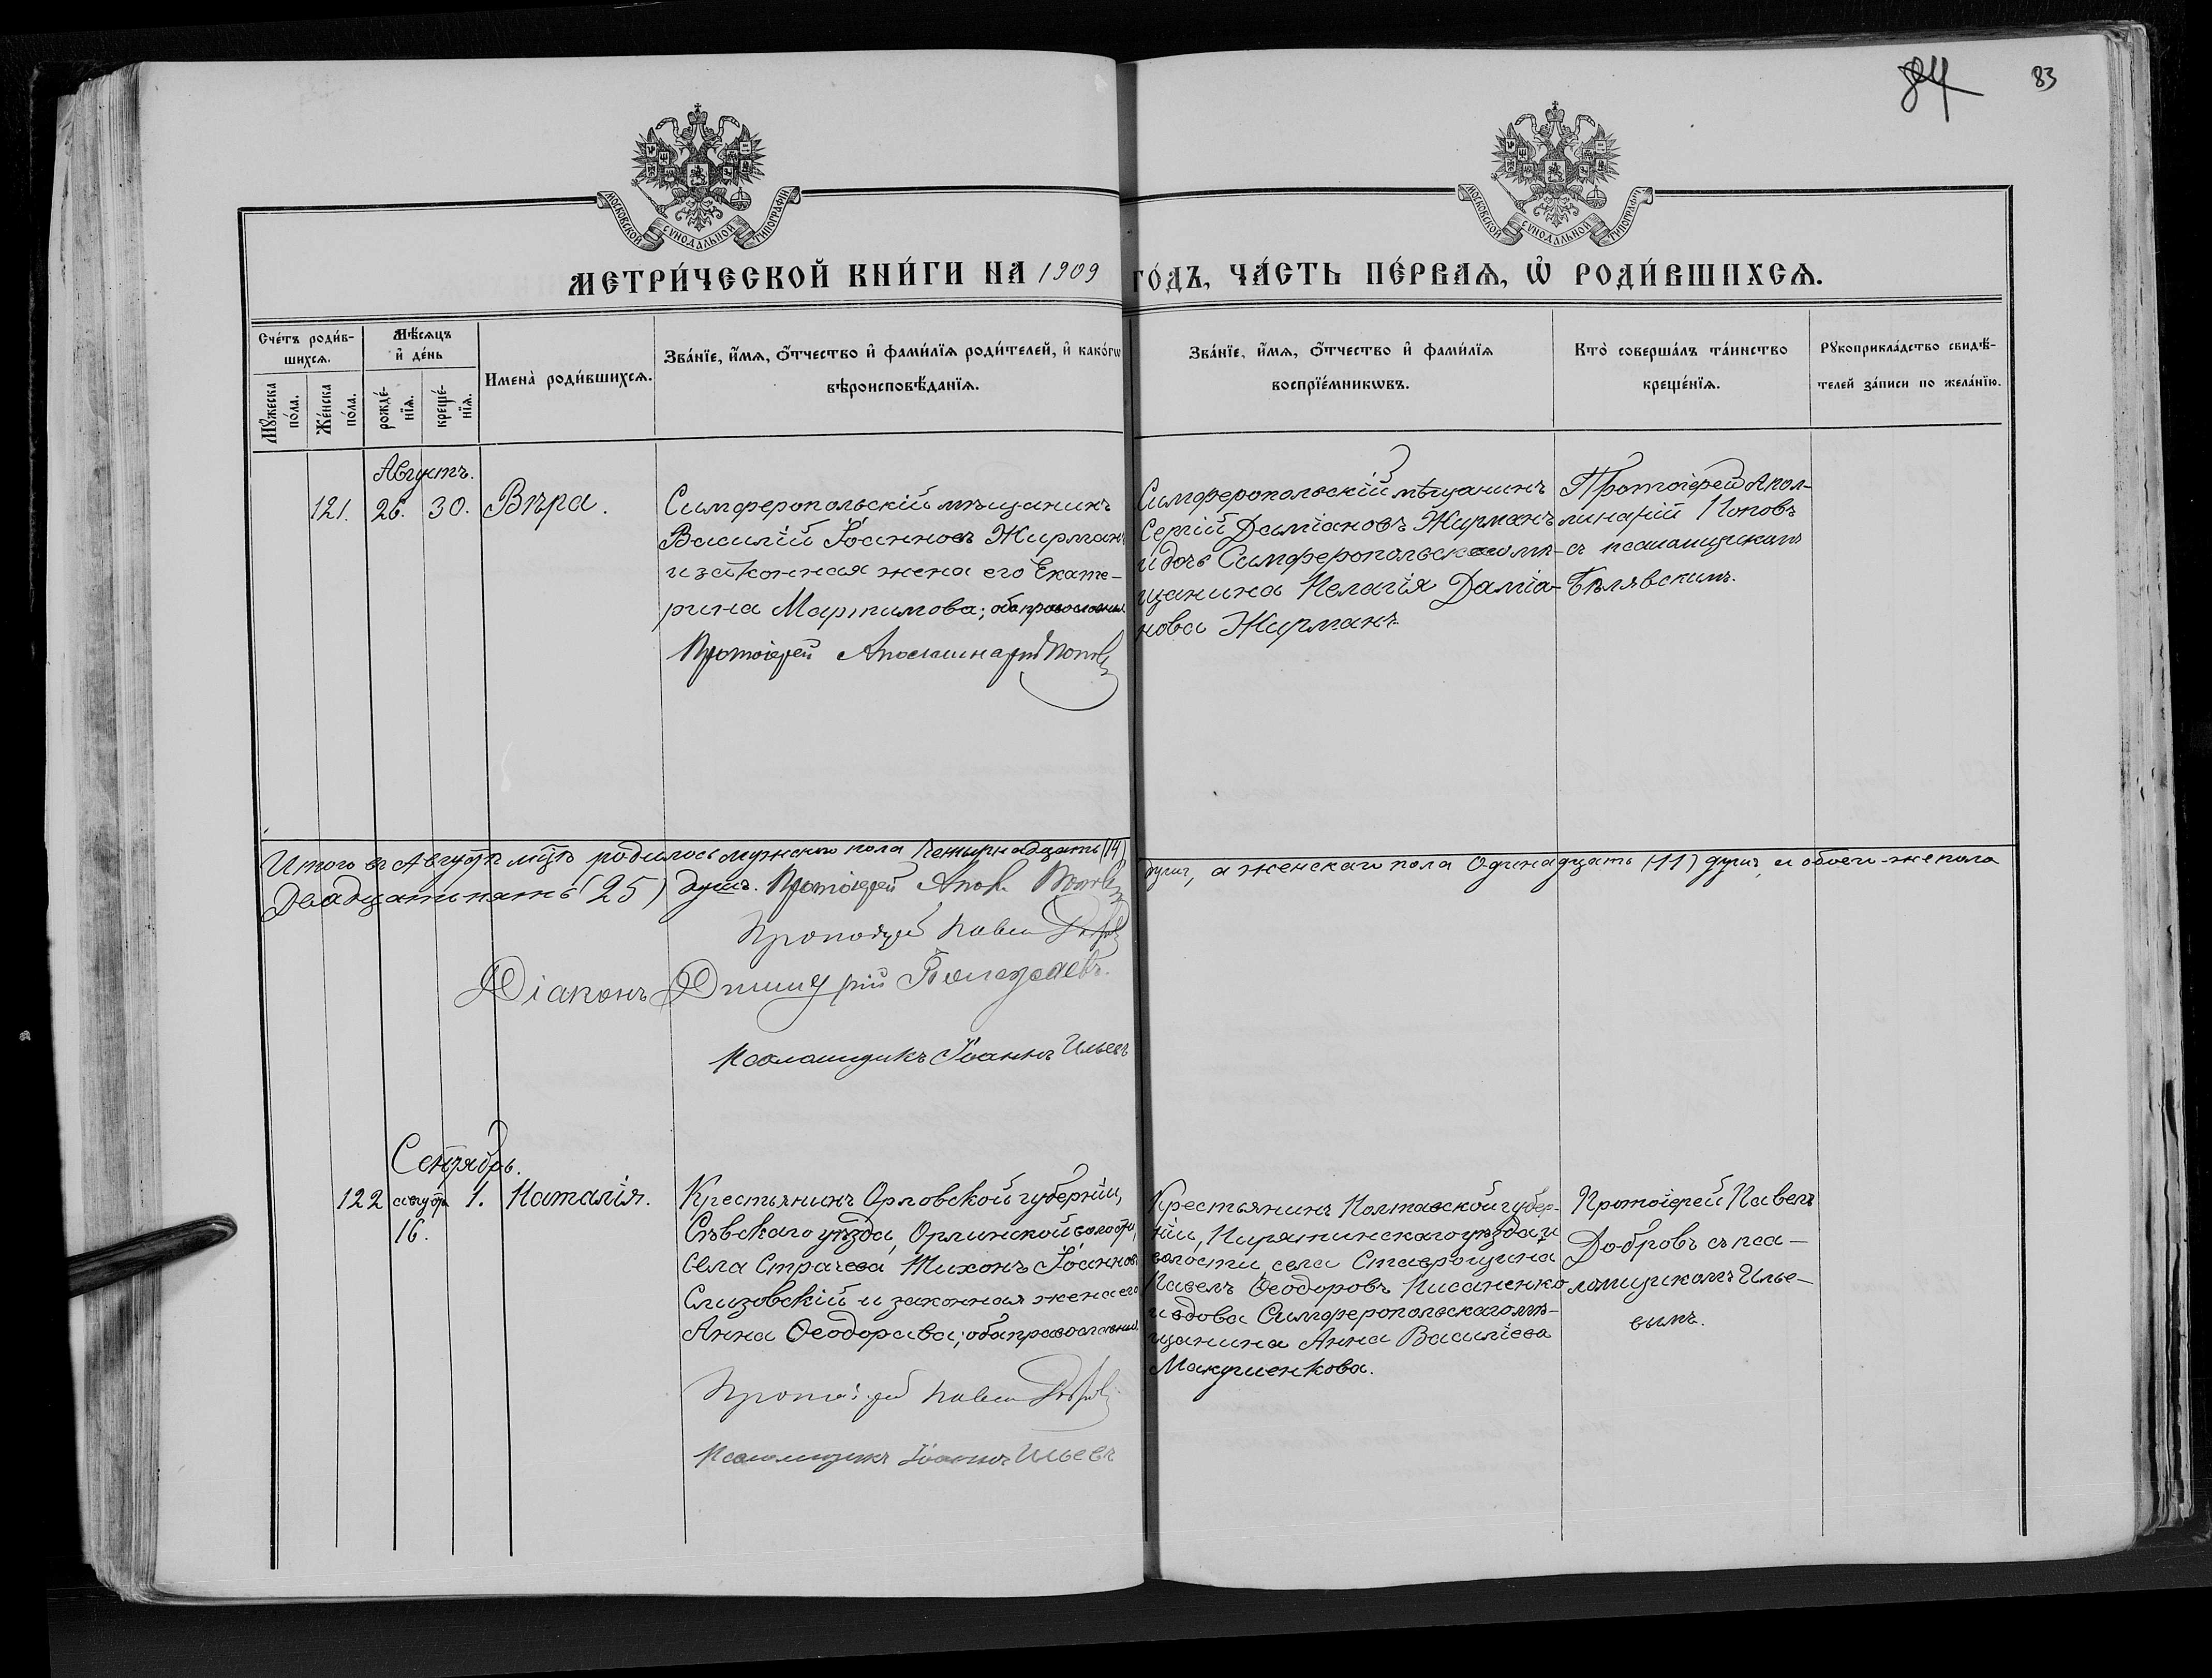 84 83
МОСКОВСКОЙ СѴНОДАЛЬНОЙ ТИПОГРАФІИ
МОСКОВСКОЙ СѴНОДАЛЬНОЙ ТИПОГРАФІИ
МЕТРИ́ЧЕСКОЙ КНИ́ГИ НА 1909 ГО́ДЪ, ЧА́СТЬ ПЕ́РВАѦ, Ѡ҆ РОДИ́ВШИХСѦ.
Сче́тъ роди́в-
шихсѧ.
Мꙋ́жеска по́ла.
Же́нска по́ла.
Мѣ́сѧцъ
и҆ де́нь
рожде́-
нїѧ.
креще́-
нїѧ.
Имена̀ роди́вшихсѧ.
Зва́нїе, и҆́мѧ, ѻ҆́тчество и҆ фами́лїѧ роди́телей, и҆ како́гѡ
вѣроисповѣ́данїѧ.
Зва́нїе, и҆́мѧ, ѻ҆́тчество и҆ фами́лїѧ
воспрїе́мникѡвъ.
Кто̀ соверша́лъ та́инство
креще́нїѧ.
Рꙋкоприкла́дство свидѣ́-
телей за́писи по жела́нїю.
Августъ.
121. 26. 30. Вѣра.
Симферопольскій мѣщанинъ
Василій Іоанновъ Жирманъ
и законная жена его Екате-
рина Мартимова; оба православные
Протоіерей Аполлинарій Поповъ
Симферопольскій мѣщанинъ
Сергій Даміановъ Жирманъ
и дочь Симферопольскаго мѣ-
щанина Пелагія Даміа-
нова Жирманъ
Протоіерей Апол-
линарій Поповъ
съ псаломщикомъ
Бѣлявскимъ.
Итого въ Августѣ мцѣ родилось мужскаго пола Четырнадцать (14) душъ, а женскаго пола Одинадцать (11) душъ, и обоего-же пола
Двадцать пять (25) душъ. Протоіерей Апол. Поповъ
Протоіерей Павелъ Добровъ
Діаконъ Димитрій
Псаломщикъ Іоаннъ Ильевъ
Сентябрь.
122 август. 1. Наталія.
16.
Крестьянинъ Орловской губерніи,
Сѣвскаго уѣзда, Орлинской волости,
села Страчева Тихонъ Іоанновъ
Слизовскій и законная жена его
Анна Ѳеодорова; оба православные
Протоіерей Павелъ Добровъ
Псаломщикъ Іоаннъ Ильевъ
Крестьянинъ Полтавской губер-
ніи, Пирятинскаго уѣзда и
волости, села Ставрощина
Павелъ Ѳеодоровъ Писаненко
и вдова Симферопольскаго мѣ-
щанина Анна Василіева
Макриенкова.
Протоіерей Павелъ
Добровъ съ пса-
ломщикомъ Илье-
вымъ.